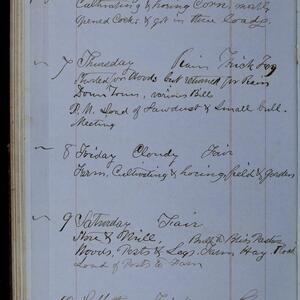 Cultivating & hoeing Corn, mostly
Opened Cocks & got in three loads.
7 Thursday Rain Thick Fog
Started for Woods but returned for Rain
Down Town, various Bills
P.M. Load of Sawdust & Small bull.
Meeting
8 Friday Cloudy Fair
Farm, Cultivating & hoeing field & garden
9 Saturday Fair
Store & Mill, Bull to
Woods, Posts & Legs. Farm Hay.
Load of Posts to Farm